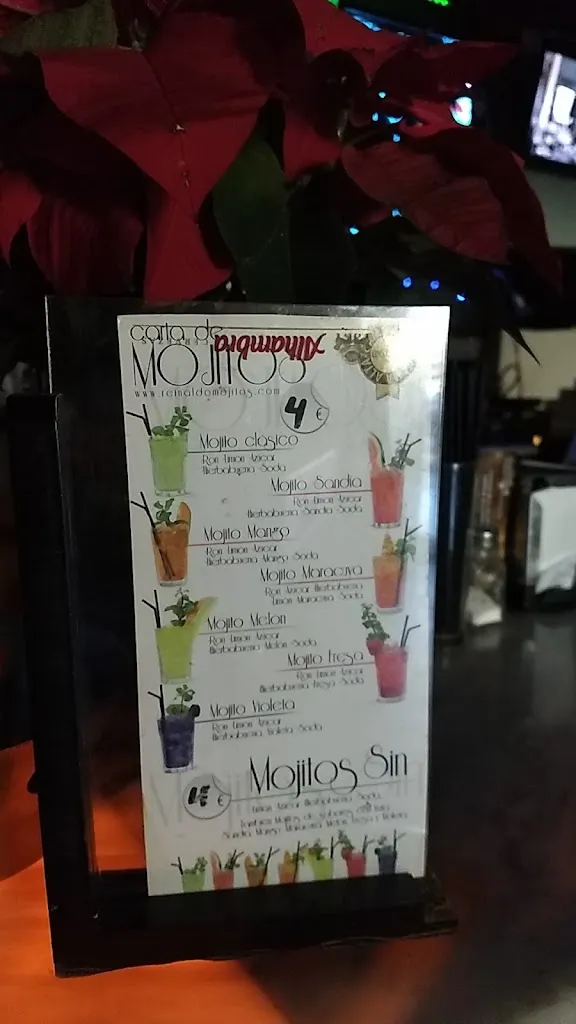 carta de
Alhambra
MOJITOS
www.reinaldomojitos.com
4 €
Mojito clásico
Ron Limón Azúcar
Hierbabuena Soda
Mojito Sandía
Ron Limón Azúcar
Hierbabuena Sandía Soda
Mojito Mango
Ron Limón Azúcar
Hierbabuena Mango Soda
Mojito Maracuya
Ron Azúcar Hierbabuena
Limón Maracuya Soda
Mojito Melón
Ron Limón Azúcar
Hierbabuena Melón Soda
Mojito Fresa
Ron Limón Azúcar
Hierbabuena Fresa Soda
Mojito Violeta
Ron Limón Azúcar
Hierbabuena Violeta Soda
Mojitos Sin
€
Limón Azúcar Hierbabuena Soda
También Mojitos de sabores
Sandía Mango Maracuya Melón Fresa y Violeta